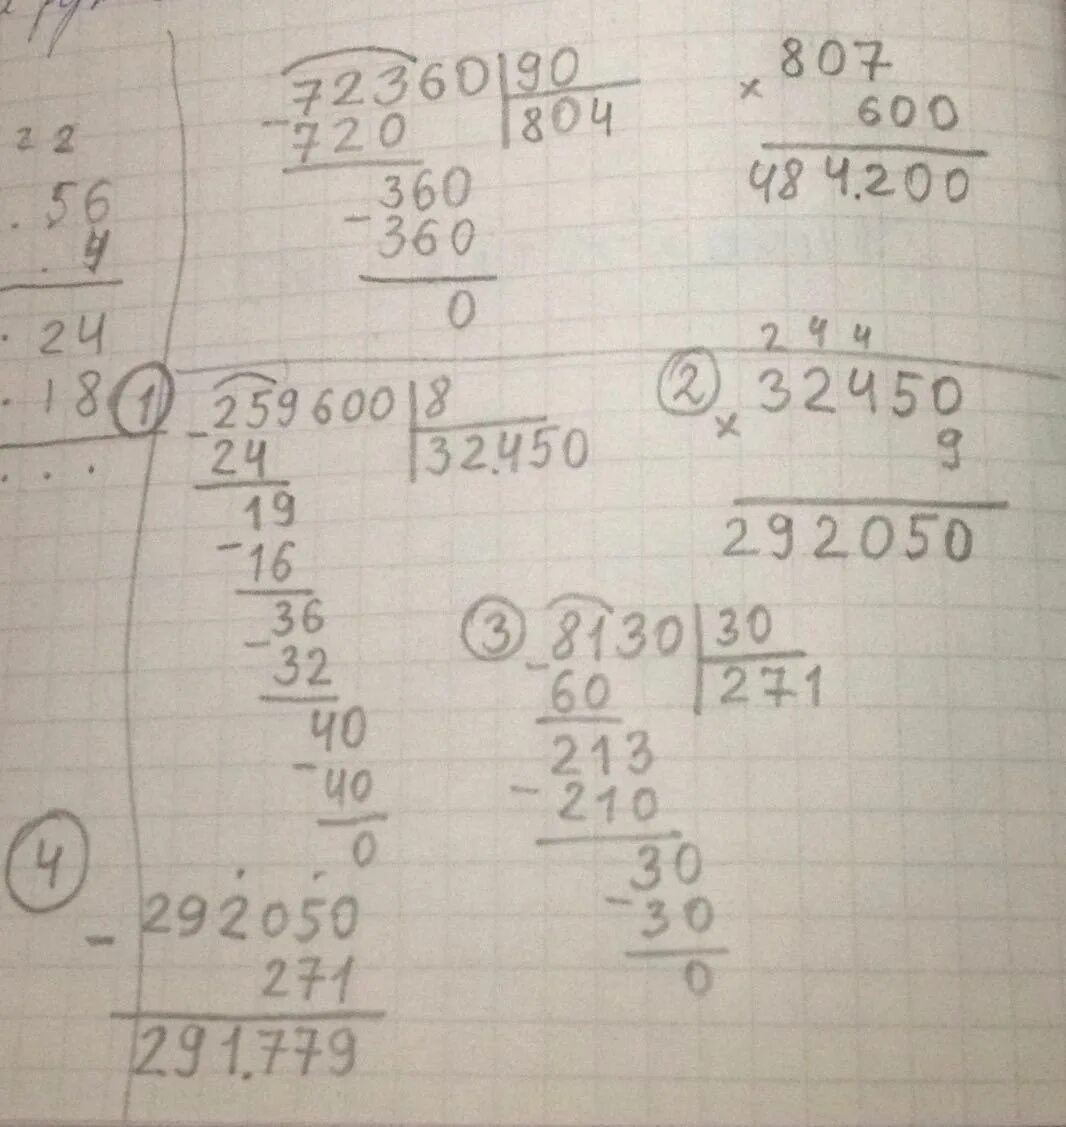 22
. 56
. 4
. 24
. 18
. . .
72360 | 90
- 720 | 804
360
- 360
0
807
× 600
484.200
① 259600 | 8
- 24 | 32.450
19
- 16
36
- 32
40
- 40
0
2 4 4
② 32450
× 9
292050
③ 8130 | 30
- 60 | 271
213
- 210
30
- 30
0
④
292050
- 271
291.779